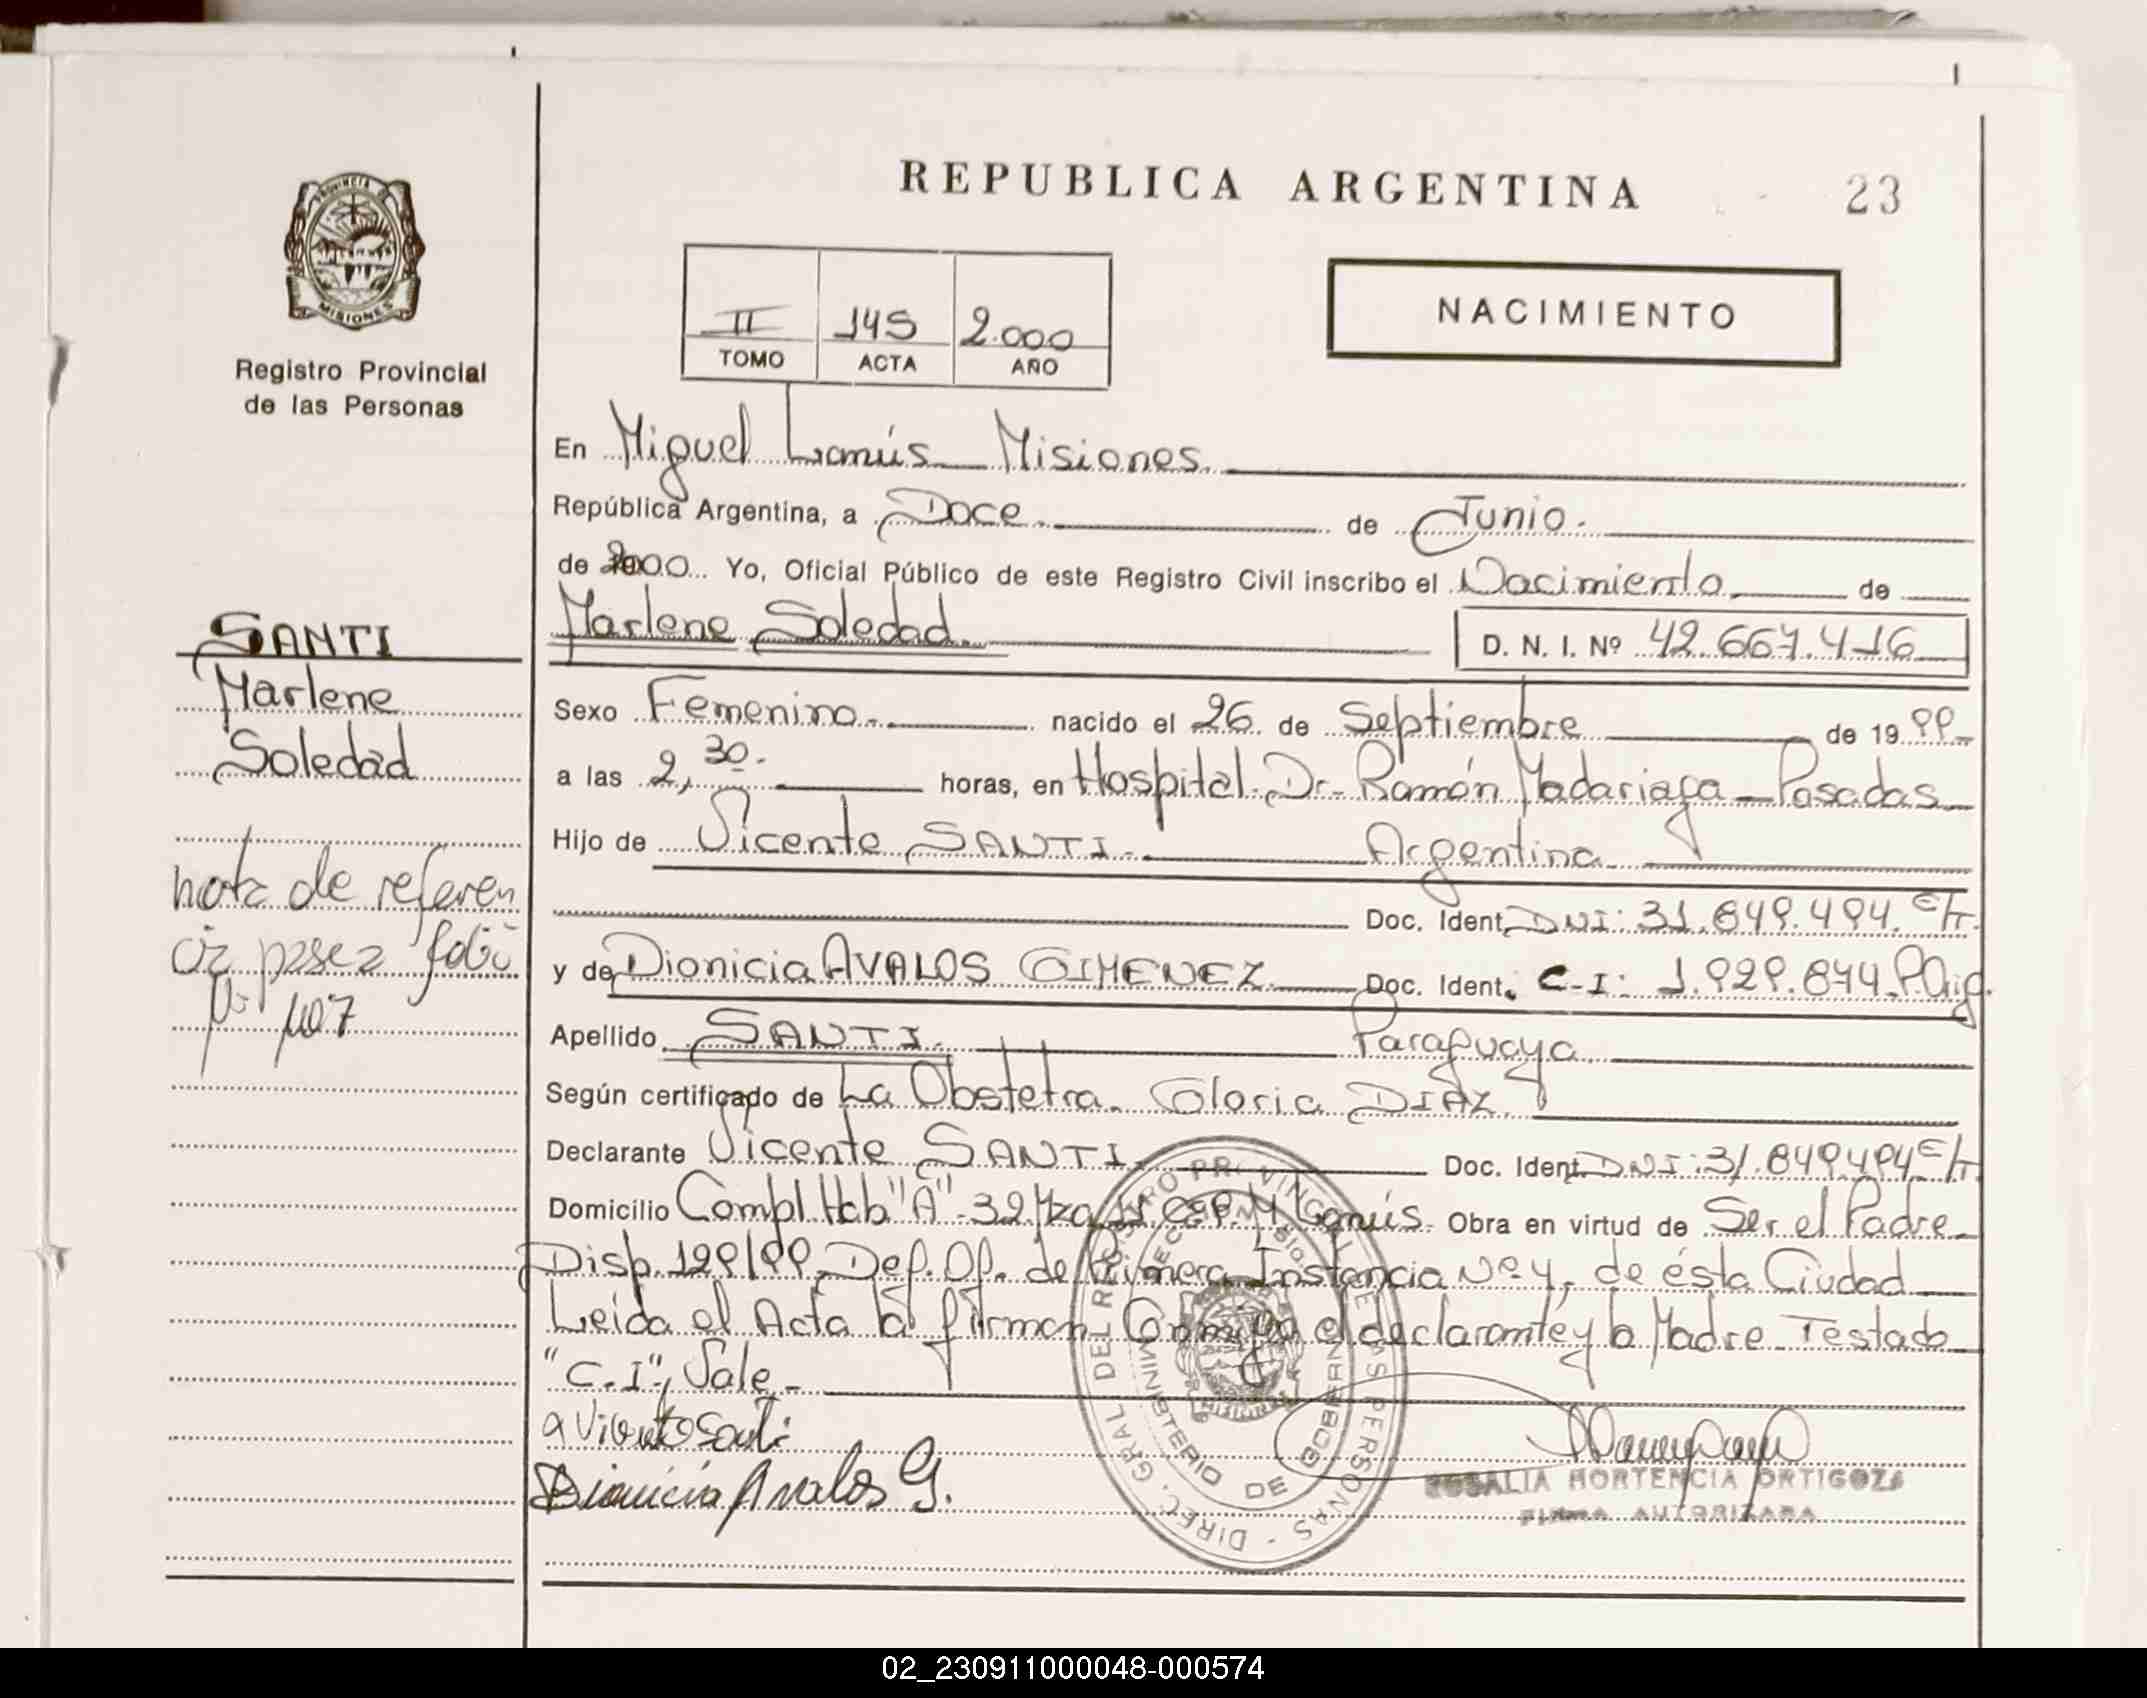 REPUBLICA ARGENTINA
23
PROVINCIA DE
MISIONES
Registro Provincial
de las Personas
II 145 2.000
TOMO ACTA AÑO
NACIMIENTO
En Miguel Lanús Misiones
República Argentina, a Doce de Junio.
de 2000 Yo, Oficial Público de este Registro Civil inscribo el Nacimiento de
Marlene Soledad.
D. N. I. Nº 42.667.416
SANTI
Marlene
Soledad
Sexo Femenino. nacido el 26 de Septiembre de 1999
a las 2,30. horas, en Hospital Dr. Ramón Madariaga - Posadas
Hijo de Vicente SANTI. Argentina
Doc. Ident. DNI: 31.849.494. E/T.
nota de referen
cia pasa a folio
407
y de Dionicia AVALOS GIMENEZ Doc. Ident. C-I: 1.929.874
Apellido SANTI. Paraguaya
Según certificado de La Obstetra. Gloria DIAZ
Declarante Vicente SANTI. Doc. Ident. DNI: 31.849.494 E/T
Domicilio Compl. Hab "A" - 32 Mza Lanús. Obra en virtud de Ser el Padre
Disp. 129/99, Def. Of. de Primera Instancia Nº 4, de ésta Ciudad
Leida el Acta la firman Conmigo el declarante y la Madre Testado
"C.I", Vale.
Vicente Santi
Dionicia Avalos G.
DIREC. GRAL DEL REGISTRO PROVINCIAL DE LAS PERSONAS
MINISTERIO DE GOBIERNO
ROSALIA HORTENCIA ORTIGOZA
FIRMA AUTORIZADA
02_230911000048-000574